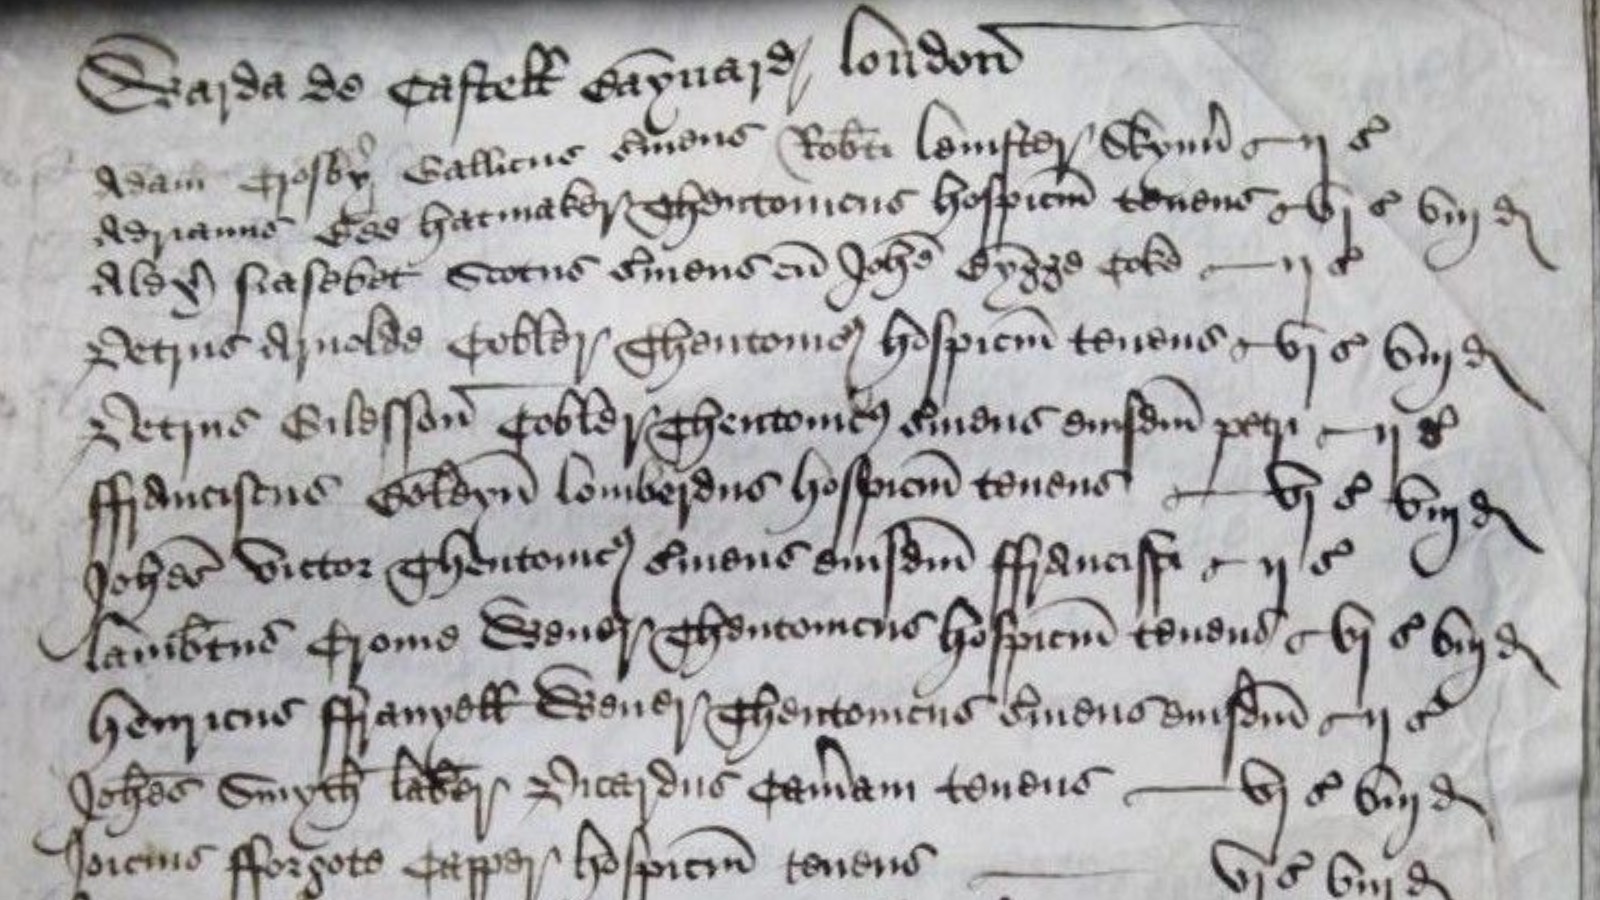 Warda de Castell Baynard london
Adam Crosby Gallicus s'uiens Rob'ti lemster Skynn' ij s
Adrianus hatmaker Theutonicus hospiciu' tenens vj s viij d
Alex' Scotus s'uiens cu' Joh'e Bygge Coke ij s
Petrus Arnolde Cobler Theutonic' hospiciu' tenens vj s viij d
Petrus Gilessoun Cobler Theutonic' s'uiens eiusdem petri ij s
ffranciscus Goldyn lomberdus hospiciu' tenens vj s viij d
Joh'es Victor Theutonic' s'uiens eiusdem ffrancissi ij s
lamb'tus Crome Wever Theutonicus hospiciu' tenens vj s viij d
henricus Wever Theutonicus s'uiens eiusdem ij s
Joh'es Smyth lab'er Picardus Cam'am tenens vj s viij d
Joicius fforgote Capper hospiciu' tenens vj s viij d